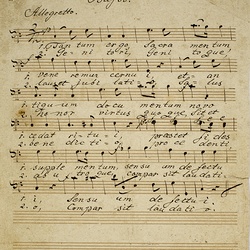 Basso.
Allegretto.
1. Tan tum ergo Sacra mentum,
2. Ge ni to ri, Geni to que,
1. vene remur cernu i, et an
2. Laus et jubi lati o, Sa lus,
1. tiquum docu mentum novo
2. ho nor virtus quo que, sit et
1. cedat ritu i, praestet fi des
2. bene dic ti o, pro ce denti
1. supple mentum sensu um de fectu
2. ab u tro que, compar sit laudati
1. i, Sensu um de fectu i.
2. o, Compar sit laudati o.